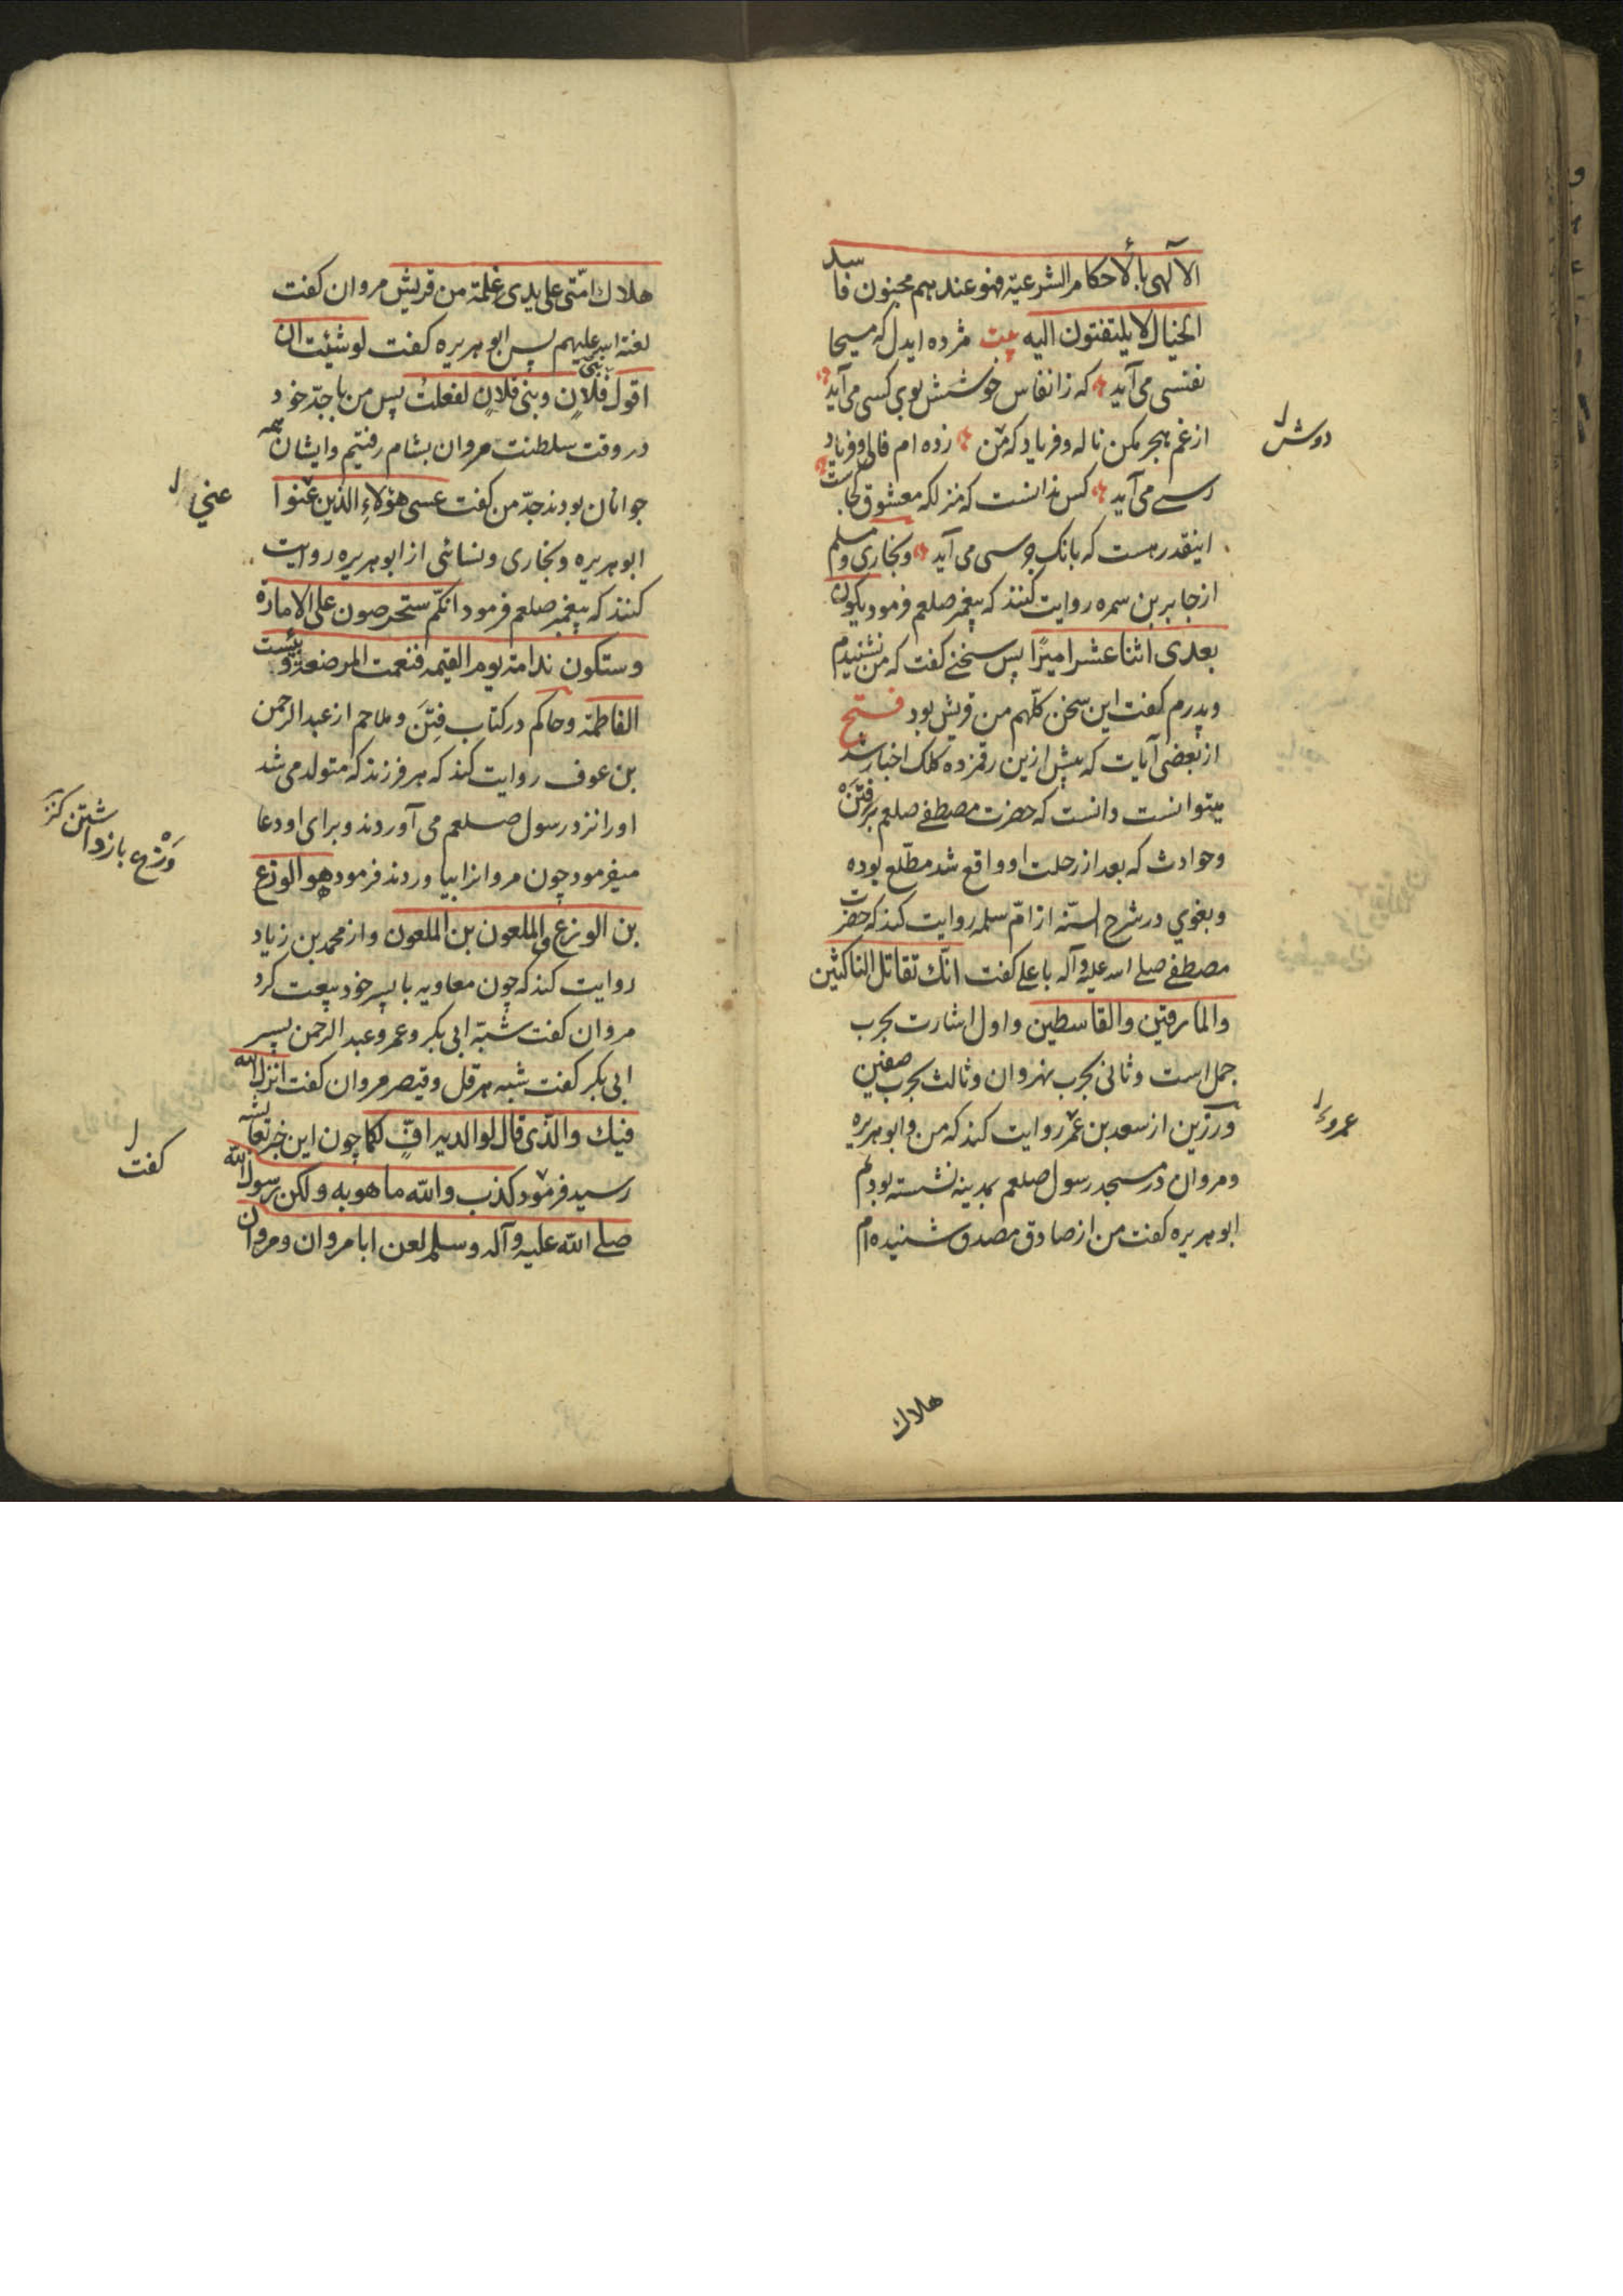 الآلهی بالاحکام الشرعیة فهو عندهم مجنون فاسد
الخیال لا یلتفتون الیه بیت مژده ایدل که مسیحا
نفسی می‌آید که ز انفاس خوشش بوی کسی می‌آید
از غم هجر مکن ناله و فریاد که من زده ام فالی و فریاد
رسی می‌آید کس ندانست که منزلکه معشوق کجاست
اینقدر هست که بانک جرسی می‌آید و بخاری و مسلم
از جابر بن سمره روایت کنند که پیغمبر صلعم فرمود یکون
بعدی اثنا عشر امیرًا پس سخنی کفت که من نشنیدم
و پدرم کفت این سخن کلّهم من قریش بود فتح
از بعضی آیات که پیش ازین رقمزده کلک اخبار شد
میتوانست دانست که حضرت مصطفی صلعم بر فتنه
و حوادث که بعد از رحلت او واقع شد مطّلع بوده
و بغوی در شرح السنّه از امّ سلمه روایت کند که حضرت
مصطفی صلی اسه علیه و آله با علی کفت انّك تقاتل الناکثین
والمارقین والقاسطین و اول اشارت بحرب
جمل است و ثانی بحرب نهروان و ثالث بحرب صفین
ورزین از سعد بن عمر روایت کند که من و ابو هریره
و مروان در مسجد رسول صلعم بمدینه نشسته بودیم
ابو هریره کفت من از صادق مصدق شنیده ام
دوش
عمرو
هلاك
هلاك امّتی علی یدی غلمة من قریش مروان کفت
لعنة اسه علیهم پس ابو هریره کفت لو شئت ان
اقول بنی فلان و بنی فلان لفعلت پس من با جدّ خود
در وقت سلطنت مروان بشام رفتیم و ایشان همه
جوانان بودند جدّ من کفت عسی هؤلاء الذین عنوا
ابو هریره و بخاری و نسائی از ابو هریره روایت
کنند که پیغمبر صلعم فرمود انکّم ستحرصون علی الامارة
و ستکون ندامة یوم القیمه فنعمت المرضعة و بئست
الفاطمة و حاکم در کتاب فِتَن و ملاحم از عبد الرحمن
بن عوف روایت کند که هر فرزند که متولد می شد
اورا نزد رسول صلعم می آوردند و برای او دعا
میفرمود چون مروانرا بیاوردند فرمود هو الوزع
بن الوزع و الملعون بن الملعون و از محمد بن زیاد
روایت کند که چون معاویه با پسر خود بیعت کرد
مروان کفت سنّة ابی بکر و عمر و عبد الرحمن پسر
ابی بکر کفت سنه هرقل و قیصر مروان کفت انزل الله
فیك والّذی قال لوالدیه افٍّ لکما چون این خبر بعایشه
رسید فرمود کذب والله ما هو به ولکن رسول الله
صلی الله علیه و آله وسلم لعن ابا مروان و مروان
عنی
وَزْع باز داشتن کنز
کفت